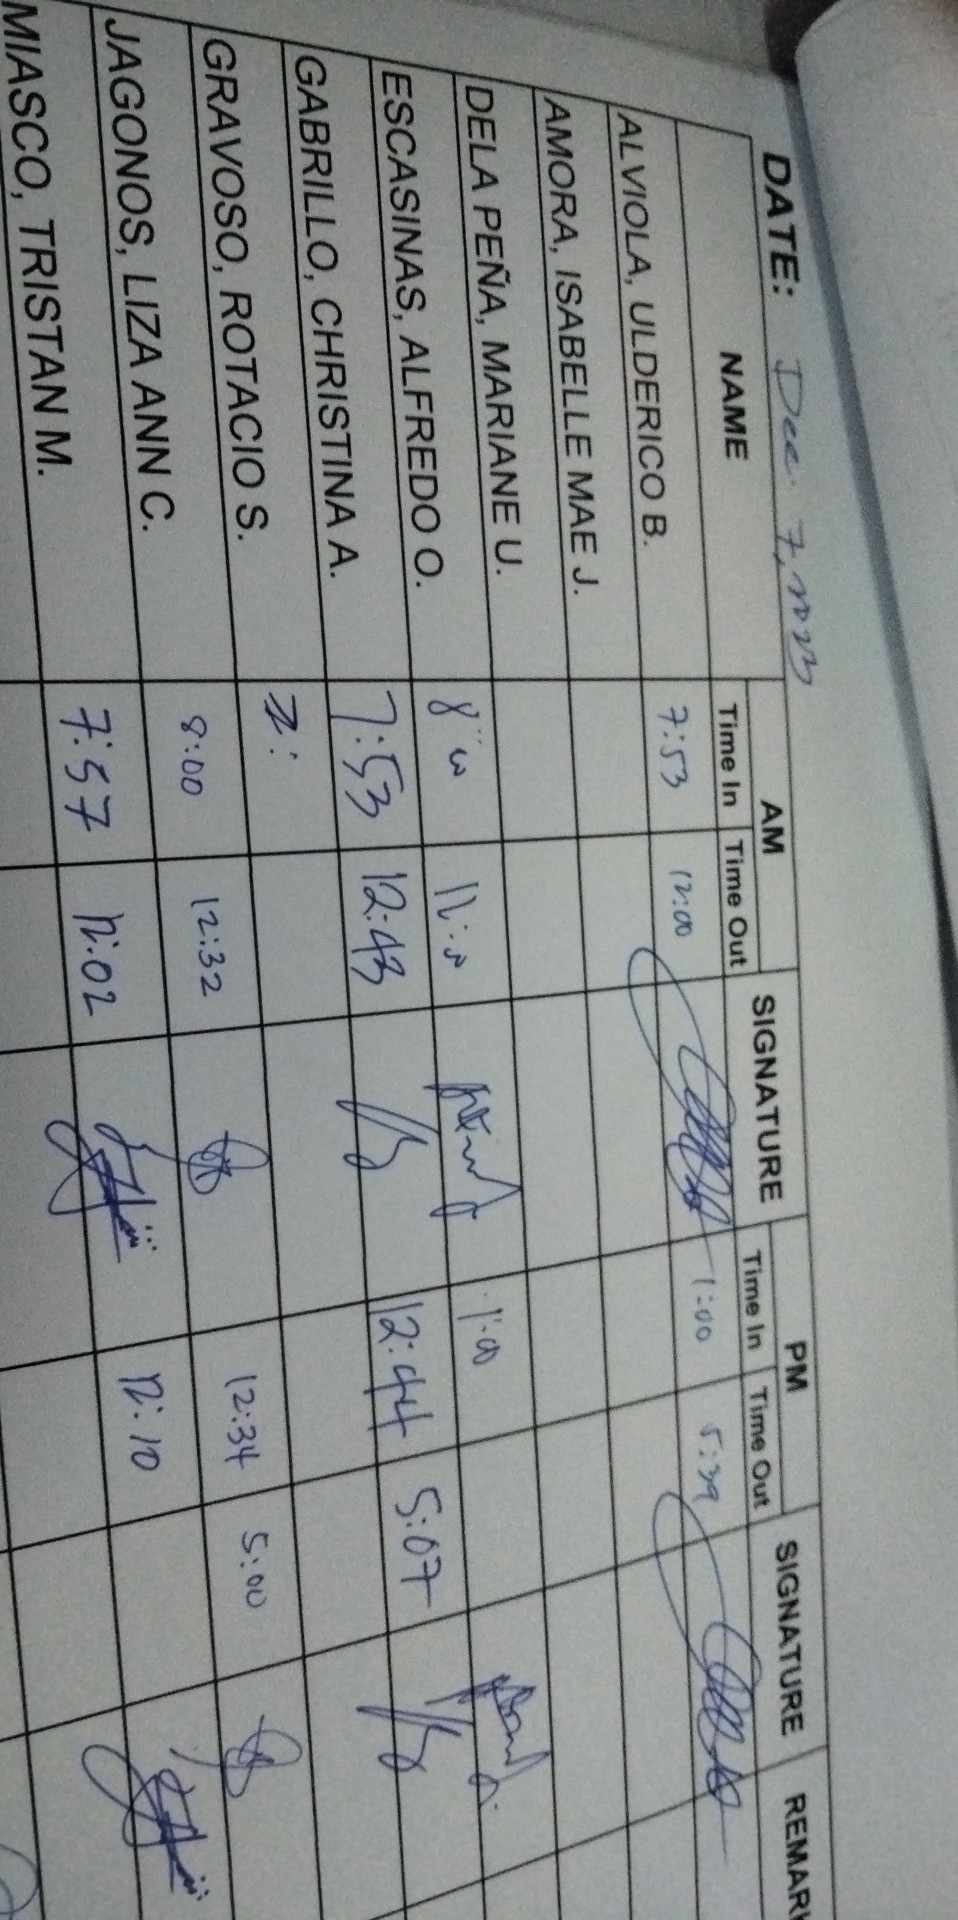 DATE: Dec. 7, 2023
NAME AM SIGNATURE PM SIGNATURE REMAR
Time In Time Out Time In Time Out
ALVIOLA, ULDERICO B. 7:53 12:00 1:00 5:39
AMORA, ISABELLE MAE J.
DELA PEÑA, MARIANE U.
ESCASINAS, ALFREDO O. 8:00 12:00 1:00
GABRILLO, CHRISTINA A. 7:53 12:43 12:44 5:07
GRAVOSO, ROTACIO S. 7:
JAGONOS, LIZA ANN C. 8:00 12:32 12:34 5:00
MIASCO, TRISTAN M. 7:57 12:02 12:10